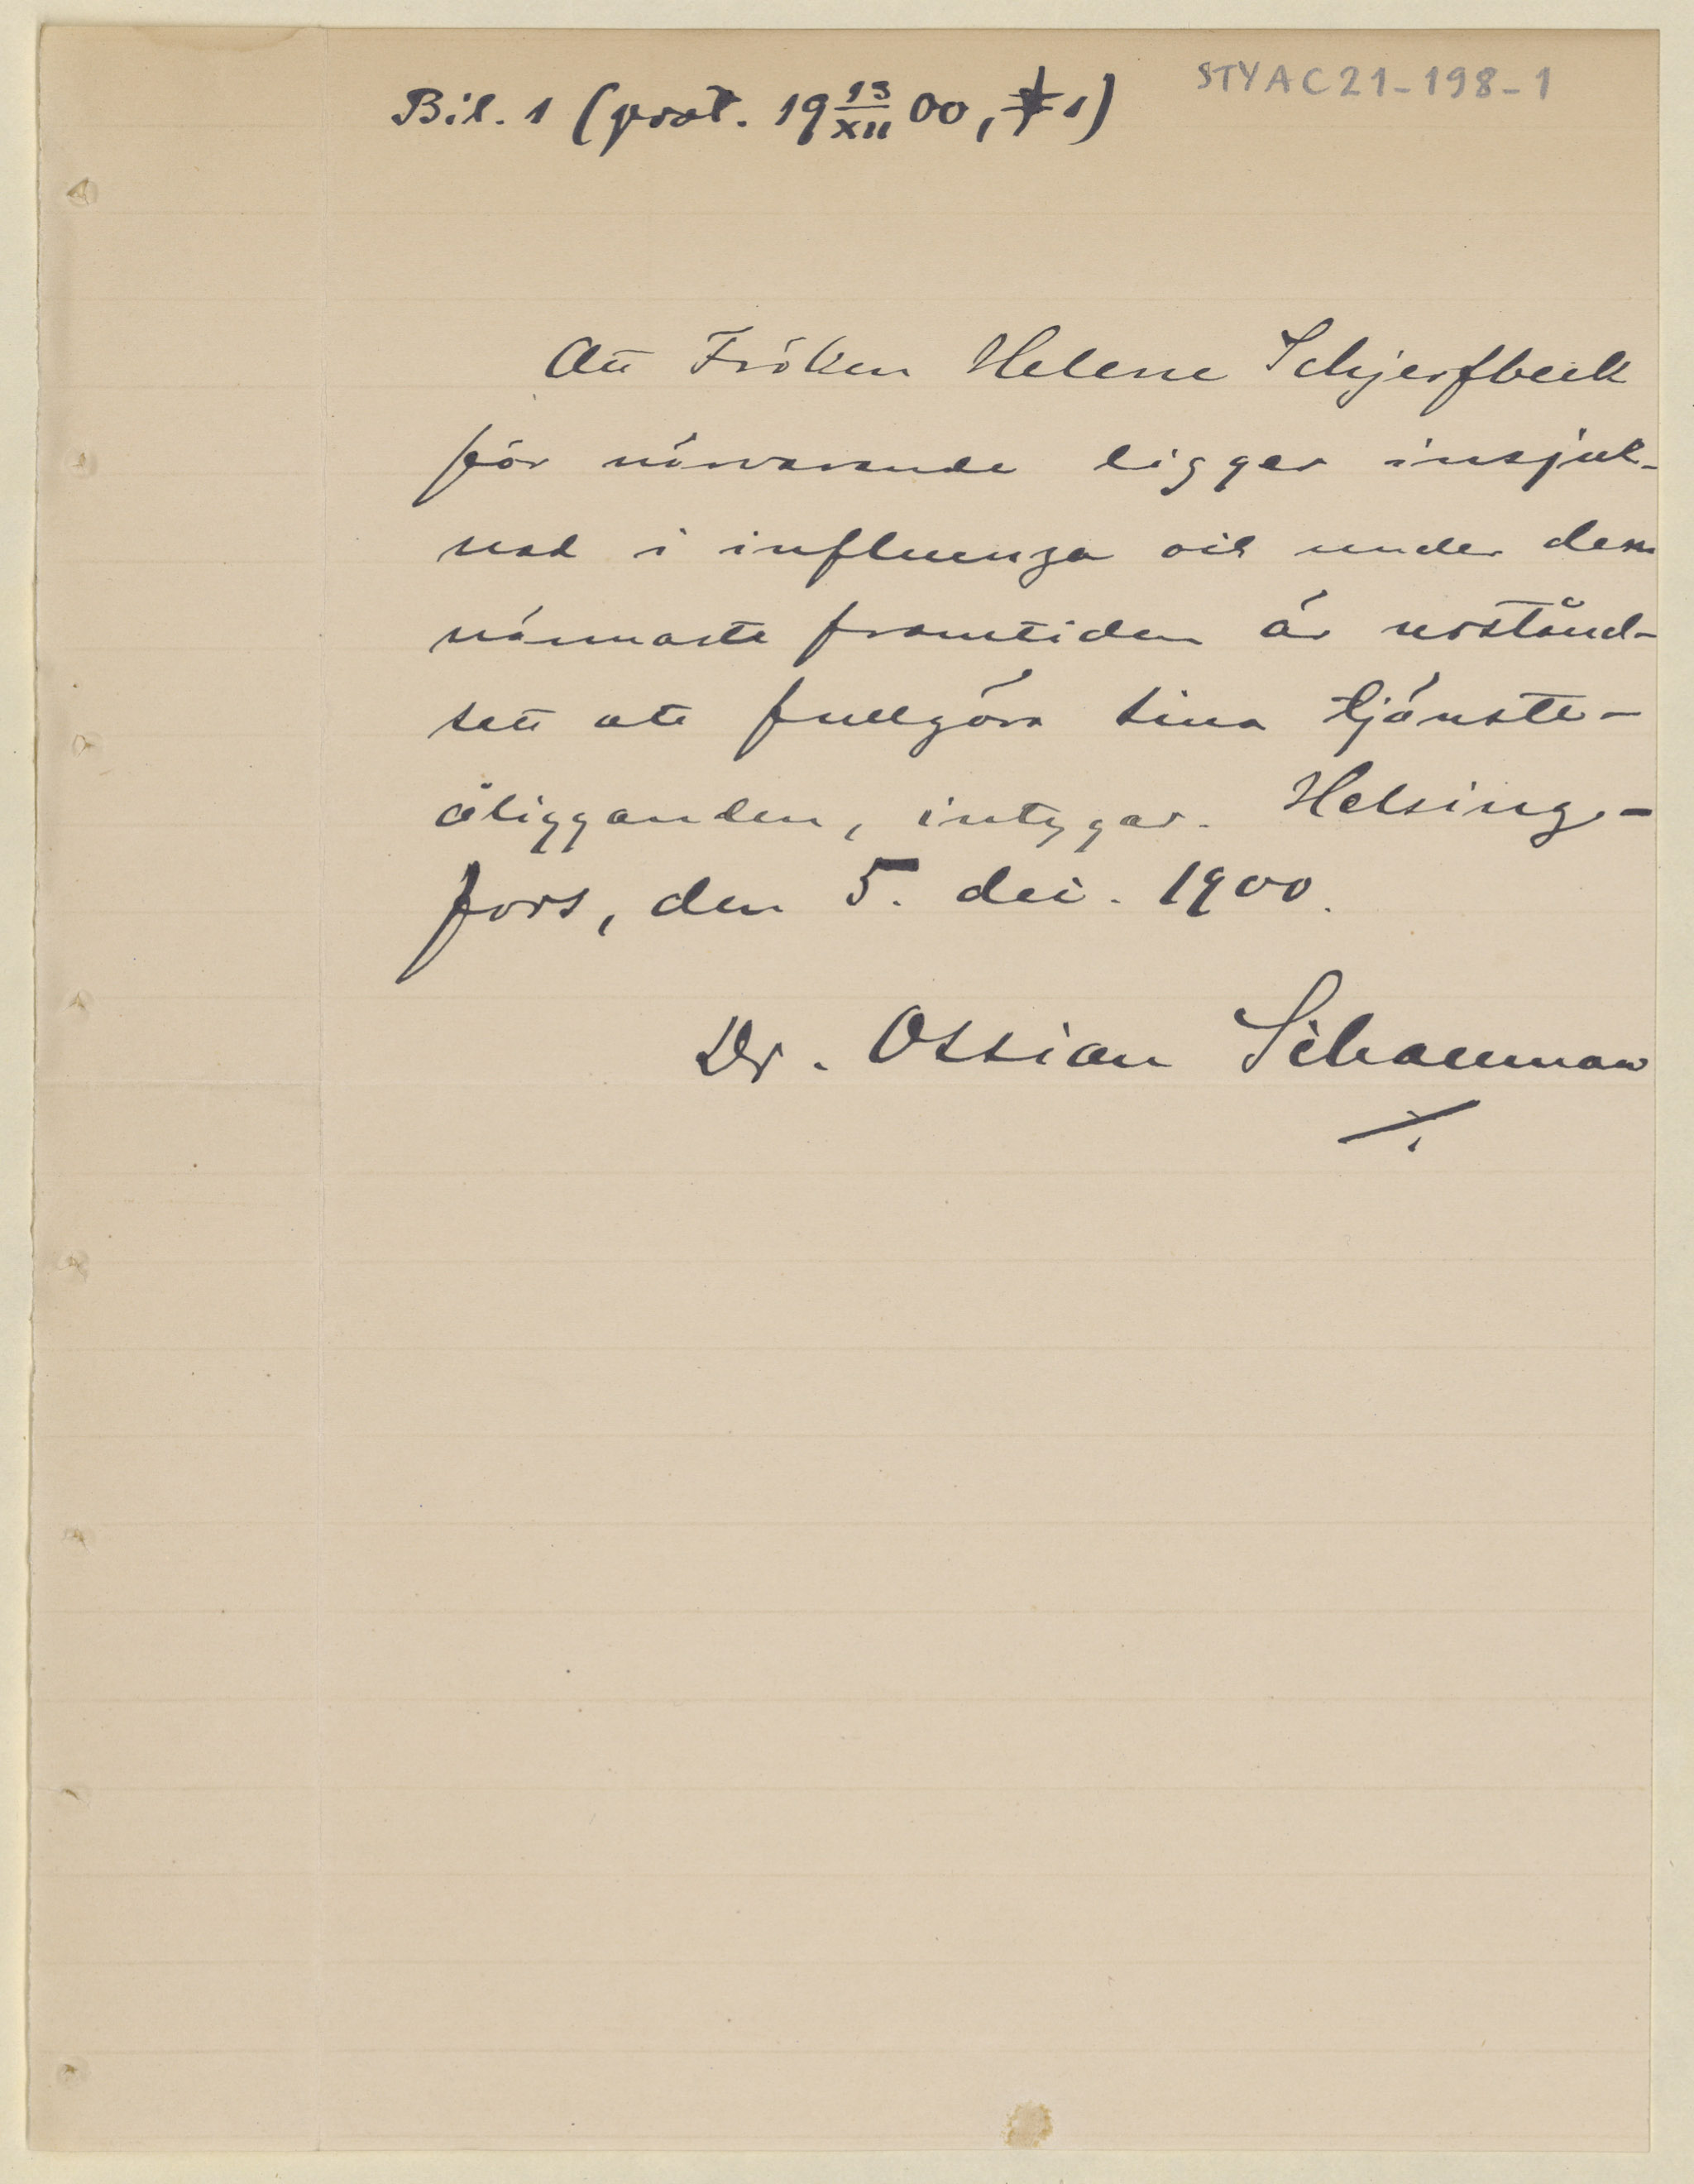 Bil. 1 (prot. 19 13/XII 00, § 1)
STYAC21-198-1
Att Fröken Helene Schjerfbeck
för närvarande ligger insjuk-
nad i influenza och under den
närmaste framtiden är urstånd-
satt att fullgöra sina tjänste-
åligganden, intygar. Helsing-
fors, den 5. dec. 1900.
Dr. Ossian Schauman